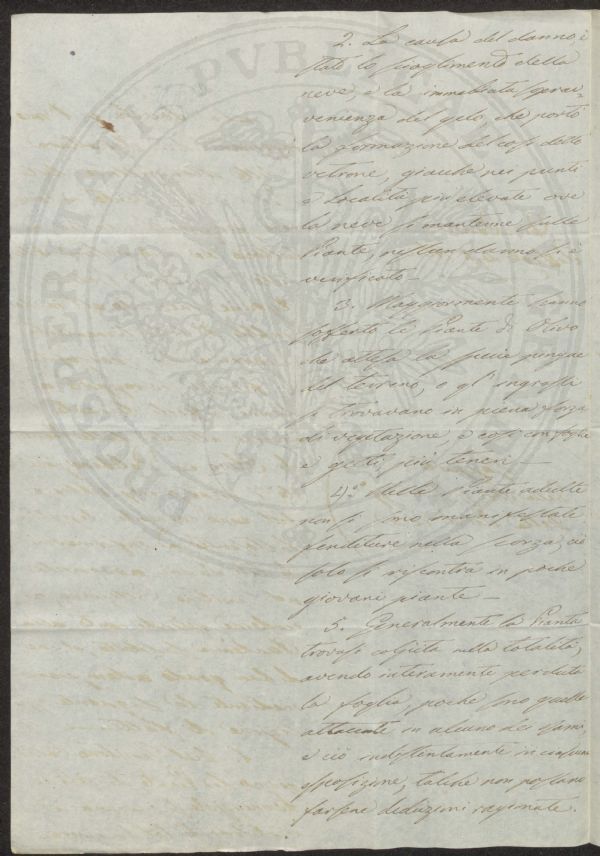 2. La causa del danno, è
stato lo scioglimento della
neve, e la immediata sprav-
venienza del gelo, che portò
la formazione del così detto
vetrone, giacchè nei punti
e Località più elevate ove
la neve si mantenne sulle
Piante, nessun danno si è
verificato –
3. Maggiormente hanno
sofferto le Piante di Olivo
che attesa la specie pingue
del terreno, o gl' ingrassi
si trovavano in piena forza
di vegetazione, e così con foglie
e getti più teneri –
4.° Nelle Piante adulte
non si sono manifestate
fenditure nella scorza, ciò
solo si riscontra in poche
giovani piante –
5. Generalmente la Pianta
trovasi colpita nella totalità,
avendo interamente perduta
la foglia, poche sono quelle
attaccate in alcuno dei rami,
e ciò indistintamente in ciascuna
esposizione, talchè non possono
farsene deduzioni ragionate.
PROSPERITATI PVBLICAE